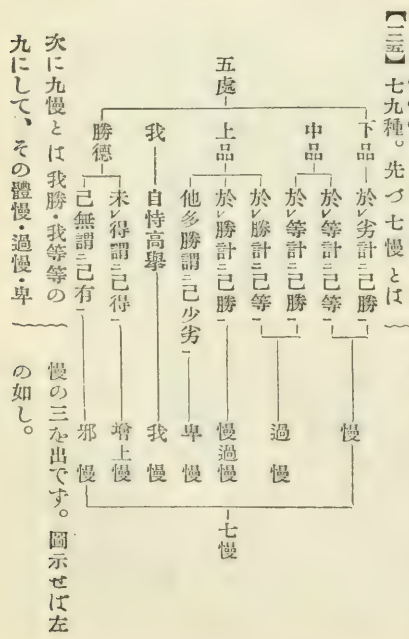 【二三五】七九種。先づ七慢とは
五處
下品
中品
上品
我
勝德
於㆑劣計㆓己勝㆒
於㆑等計㆓己等㆒
於㆑等計㆓己勝㆒
於㆑勝計㆓己等㆒
於㆑勝計㆓己勝㆒
他多勝謂㆓己少劣㆒
自恃高擧
未㆑得謂㆓己得㆒
己無謂㆓己有㆒
慢
過慢
慢過慢
卑慢
我慢
增上慢
邪慢
七慢
次に九慢とは我勝・我等等の
九にして、その體慢・過慢・卑
慢の三を出でず。圖示せば左
の如し。